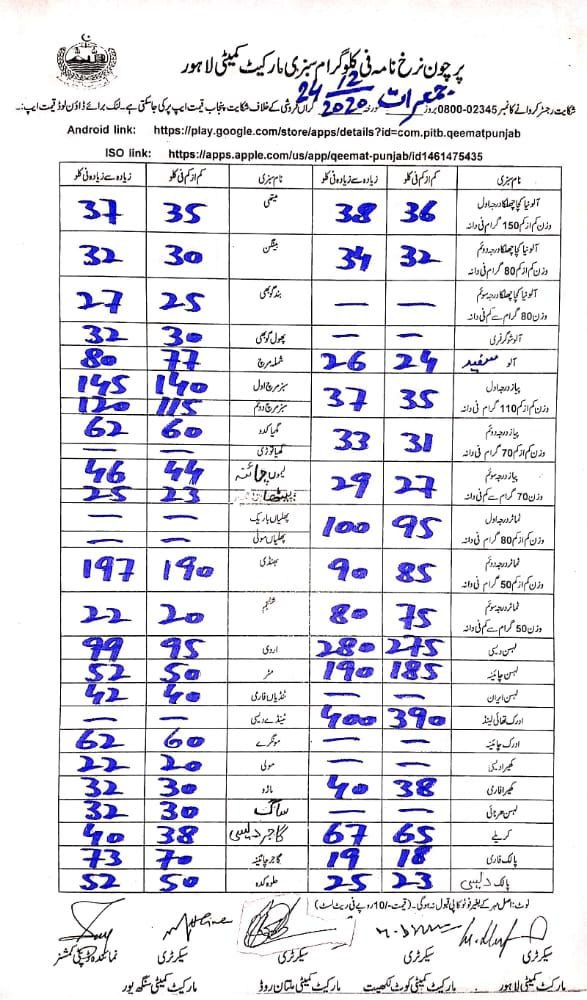 پرچون نرخ نامہ فی کلوگرام سبزی مارکیٹ کمیٹی لاہور
شکایت رجسٹر کروانے کا نمبر 02345-0800 بروز جمعرات مورخہ 24/12/2020 گراں فروشی کے خلاف شکایت پنجاب قیمت ایپ پر کی جاسکتی ہے۔ لنک برائے ڈاؤن لوڈ قیمت ایپ:۔
Android link: https://play.google.com/store/apps/details?id=com.pitb.qeematpunjab
ISO link: https://apps.apple.com/us/app/qeemat-punjab/id1461475435
نام سبزی کم از کم فی کلو زیادہ سے زیادہ فی کلو نام سبزی کم از کم فی کلو زیادہ سے زیادہ فی کلو
آلو نیا کچا چھلکا درجہ اول 36 38 میتھی 35 37
وزن کم از کم 150 گرام فی دانہ
آلو نیا کچا چھلکا درجہ دوئم 32 34 بینگن 30 32
وزن کم از کم 80 گرام فی دانہ
آلو نیا کچا چھلکا درجہ سوئم — — بند گوبھی 25 27
وزن 80 گرام سے کم فی دانہ
آلو شوگر فری — — پھول گوبھی 30 32
آلو سفید 24 26 شملہ مرچ 77 80
پیاز درجہ اول 35 37 سبز مرچ اول 140 145
وزن کم از کم 110 گرام فی دانہ سبز مرچ دوئم 115 120
پیاز درجہ دوئم 31 33 گھیا کدو 60 62
وزن کم از کم 70 گرام فی دانہ گھیا توری — —
پیاز درجہ سوئم 27 29 لیموں چائنہ 44 46
وزن 70 گرام سے کم فی دانہ 23 25
ٹماٹر درجہ اول 95 100 پھلیاں باریک — —
وزن کم از کم 80 گرام فی دانہ پھلیاں موٹی — —
ٹماٹر درجہ دوئم 85 90 بھنڈی 190 197
وزن کم از کم 50 گرام فی دانہ
ٹماٹر درجہ سوئم 75 80 شلجم 20 22
وزن 50 گرام سے کم فی دانہ
لہسن دیسی 275 280 اروی 95 99
لہسن چائینہ 185 190 مٹر 50 52
لہسن ایران — — ٹینڈیاں فارمی 40 42
ادرک تھائی لینڈ 390 400 ٹینڈے دیسی — —
ادرک چائینہ — — مونگرے 60 62
کھیرا دیسی — — مولی 20 22
کھیرا فارمی 38 40 ماڑو 30 32
لہسن ہرنائی — — ساگ 30 32
کریلے 65 67 گاجر دیسی 38 40
پالک فارمی 18 19 گاجر چائینہ 70 73
پالک دیسی 23 25 حلوہ کدو 50 52
نوٹ: اصل مہر کے بغیر فوٹو کاپی قبول نہ ہوگی۔ (قیمت -/10 روپے فی ریٹ لسٹ)
سیکرٹری سیکرٹری سیکرٹری سیکرٹری نمائندہ ڈپٹی کمشنر
مارکیٹ کمیٹی لاہور مارکیٹ کمیٹی کوٹ لکھپت مارکیٹ کمیٹی ملتان روڈ مارکیٹ کمیٹی سنگھ پور